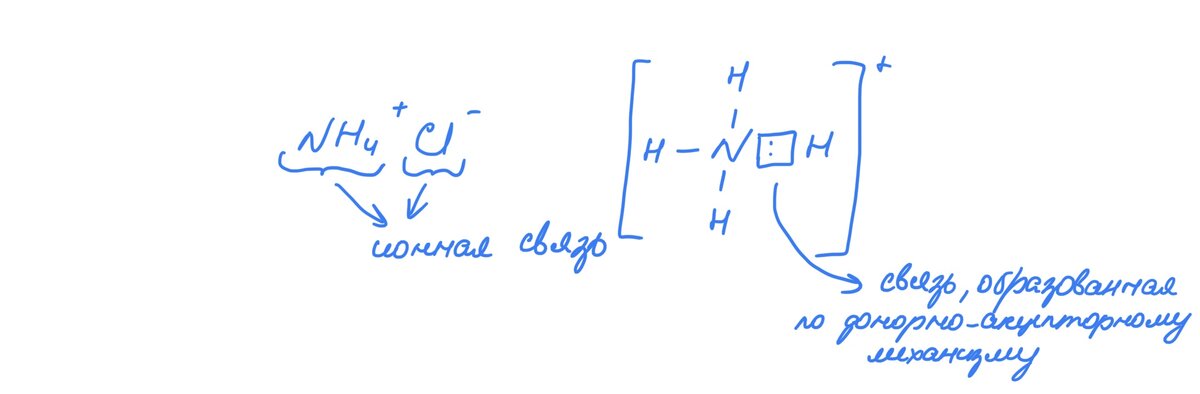 NH₄⁺Cl⁻
ионная связь
[
H
H – N : H
H
]⁺
связь, образованная
по донорно-акцепторному
механизму